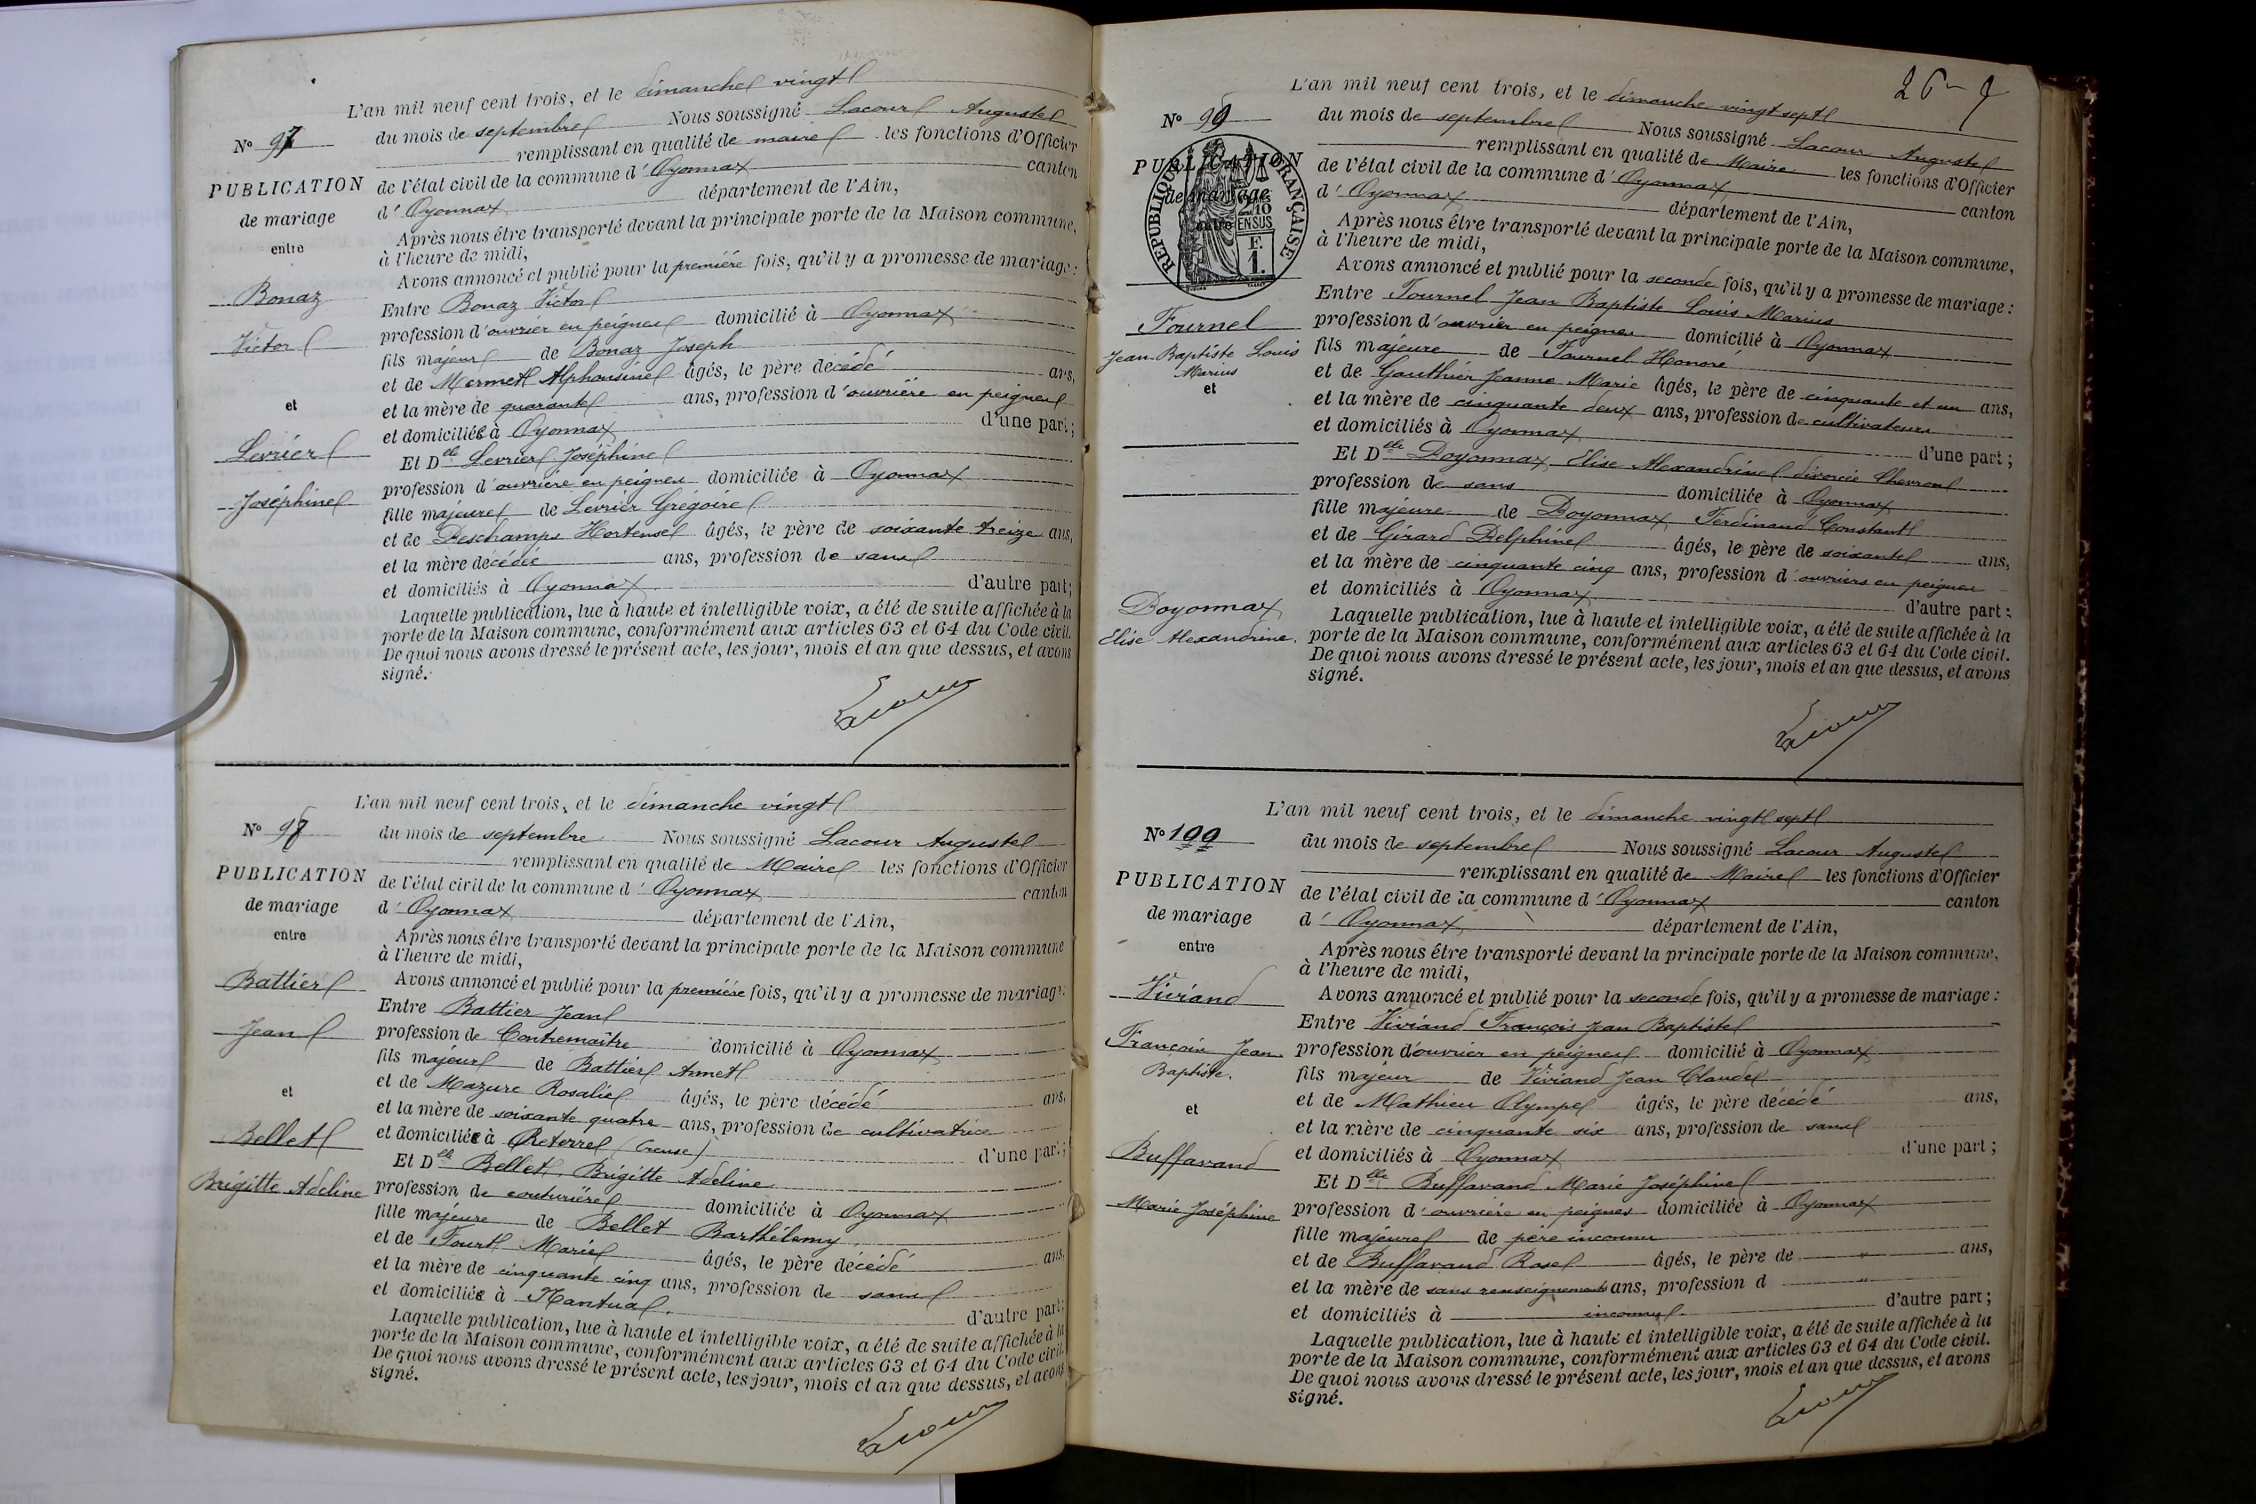 L'an mil neuf cent trois, et le dimanche vingt
N° 97
du mois de septembre Nous soussigné Lacour Auguste
remplissant en qualité de maire les fonctions d'Officier
PUBLICATION
de l'état civil de la commune d'Oyonnax canton
de mariage
d'Oyonnax département de l'Ain,
entre
Après nous être transporté devant la principale porte de la Maison commune,
à l'heure de midi,
Avons annoncé et publié pour la première fois, qu'il y a promesse de mariage :
Bonaz
Entre Bonaz Victor
Victor
profession d'ouvrier en peignes domicilié à Oyonnax
fils majeur de Bonaz Joseph
et de Mermet Alphonsine âgés, le père décédé ans,
et
et la mère de quarante ans, profession d'ouvrière en peignes
et domiciliée à Oyonnax d'une part ;
Levrier
Et Dlle Levrier Joséphine
Joséphine
profession d'ouvrière en peignes domiciliée à Oyonnax
fille majeure de Levrier Grégoire
et de Deschamps Hortense âgés, le père de soixante treize ans,
et la mère décédée ans, profession de sans
et domiciliés à Oyonnax d'autre part ;
Laquelle publication, lue à haute et intelligible voix, a été de suite affichée à la
porte de la Maison commune, conformément aux articles 63 et 64 du Code civil.
De quoi nous avons dressé le présent acte, les jour, mois et an que dessus, et avons
signé.
Lacour
L'an mil neuf cent trois, et le dimanche vingt
N° 98
du mois de septembre Nous soussigné Lacour Auguste
remplissant en qualité de Maire les fonctions d'Officier
PUBLICATION
de l'état civil de la commune d'Oyonnax canton
de mariage
d'Oyonnax département de l'Ain,
entre
Après nous être transporté devant la principale porte de la Maison commune
à l'heure de midi,
Battier
Avons annoncé et publié pour la première fois, qu'il y a promesse de mariage:
Entre Battier Jean
Jean
profession de Contremaître domicilié à Oyonnax
fils majeur de Battier Annet
et
et de Mazure Rosalie âgés, le père décédé ans,
et la mère de soixante quatre ans, profession de cultivatrice
Bellet
et domiciliée à Reterre (Creuse) d'une part ;
Et Dlle Bellet Brigitte Adeline
Brigitte Adeline
profession de couturière domiciliée à Oyonnax
fille majeure de Bellet Barthélemy
et de Fourt Marie âgés, le père décédé ans,
et la mère de cinquante cinq ans, profession de sans
et domiciliée à Nantua d'autre part ;
Laquelle publication, lue à haute et intelligible voix, a été de suite affichée à la
porte de la Maison commune, conformément aux articles 63 et 64 du Code civil.
De quoi nous avons dressé le présent acte, les jour, mois et an que dessus, et avons
signé.
Lacour
26
L'an mil neuf cent trois, et le dimanche vingt sept
N° 99
du mois de septembre Nous soussigné Lacour Auguste
remplissant en qualité de Maire les fonctions d'Officier
PUBLICATION
de l'état civil de la commune d'Oyonnax canton
de mariage
d'Oyonnax département de l'Ain,
entre
RÉPUBLIQUE FRANÇAISE
2/10
EN SUS
F.
1.
Après nous être transporté devant la principale porte de la Maison commune,
à l'heure de midi,
Avons annoncé et publié pour la seconde fois, qu'il y a promesse de mariage :
Fournel
Entre Fournel Jean Baptiste Louis Marius
Jean Baptiste Louis
Marius
profession d'ouvrier en peignes domicilié à Oyonnax
fils majeure de Fournel Honoré
et
et de Gauthier Jeanne Marie âgés, le père de cinquante et un ans,
et la mère de cinquante deux ans, profession de cultivateurs
et domiciliés à Oyonnax d'une part ;
Et Dlle Doyonnax Elise Alexandrine divorcée Chevron
profession de sans domiciliée à Oyonnax
fille majeure de Doyonnax Ferdinand Constant
et de Girard Delphine âgés, le père de soixante ans,
et la mère de cinquante cinq ans, profession d'ouvriers en peignes
Doyonnax
et domiciliés à Oyonnax d'autre part :
Elise Alexandrine.
Laquelle publication, lue à haute et intelligible voix, a été de suite affichée à la
porte de la Maison commune, conformément aux articles 63 et 64 du Code civil.
De quoi nous avons dressé le présent acte, les jour, mois et an que dessus, et avons
signé.
Lacour
L'an mil neuf cent trois, et le dimanche vingt sept
N° 100
du mois de septembre Nous soussigné Lacour Auguste
remplissant en qualité de Maire les fonctions d'Officier
PUBLICATION
de l'état civil de la commune d'Oyonnax canton
de mariage
d'Oyonnax département de l'Ain,
entre
Après nous être transporté devant la principale porte de la Maison commune,
à l'heure de midi,
Viviand
Avons annoncé et publié pour la seconde fois, qu'il y a promesse de mariage :
Entre Viviand François Jean Baptiste
François Jean
Baptiste.
profession d'ouvrier en peignes domicilié à Oyonnax
fils majeur de Viviand Jean Claude
et
et de Mathieu Olympe âgés, le père décédé ans,
et la mère de cinquante six ans, profession de sans
Buffavand
et domiciliés à Oyonnax d'une part ;
Et Dlle Buffavand Marie Joséphine
Marie Joséphine
profession d'ouvrière en peignes domiciliée à Oyonnax
fille majeure de père inconnu
et de Buffavand Rose âgés, le père de " ans,
et la mère de sans renseignements ans, profession d "
et domiciliés à inconnu d'autre part ;
Laquelle publication, lue à haute et intelligible voix, a été de suite affichée à la
porte de la Maison commune, conformément aux articles 63 et 64 du Code civil.
De quoi nous avons dressé le présent acte, les jour, mois et an que dessus, et avons
signé.
Lacour